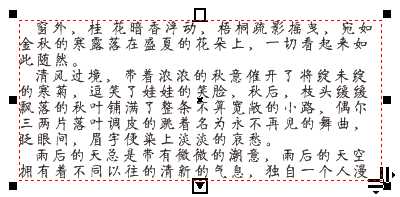 窗外，桂 花暗香浮动，梧桐疏影摇曳，宛如
金秋的寒露落在盛夏的花朵上，一切看起来如
此随然。
清风过境，带着浓浓的秋意催开了将绽未绽
的寒菊，逗笑了娃娃的笑脸，秋后，枝头缓缓
飘落的秋叶铺满了整条不算宽敞的小路，偶尔
三两片落叶调皮的跳着名为永不再见的舞曲，
眨眼间，眉宇便染上淡淡的哀愁。
雨后的天总是带有微微的潮意，雨后的天空
拥有着不同以往的清新的气息，独自一个人漫